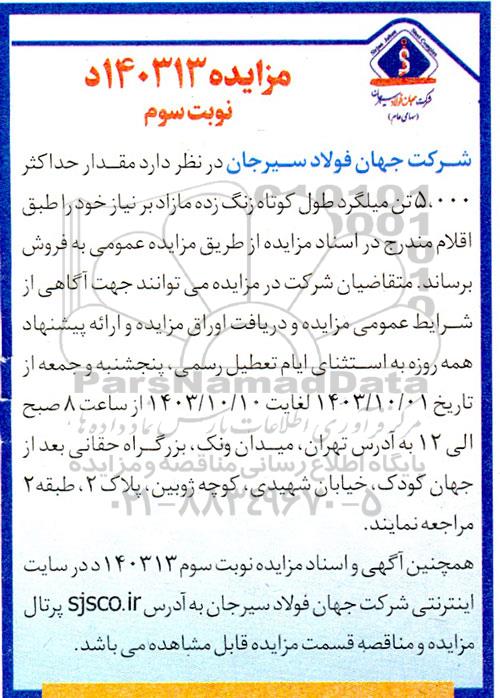 Sirjan Jahan Steel Complex
شرکت جهان فولاد سیرجان
(سهامی عام)
مزایده ۱۴۰۳۱۳د
نوبت سوم
شرکت جهان فولاد سیرجان در نظر دارد مقدار حداکثر
۵،۰۰۰ تن میلگرد طول کوتاه زنگ زده مازاد بر نیاز خود را طبق
اقلام مندرج در اسناد مزایده از طریق مزایده عمومی به فروش
برساند. متقاضیان شرکت در مزایده می توانند جهت آگاهی از
شرایط عمومی مزایده و دریافت اوراق مزایده و ارائه پیشنهاد
همه روزه به استثنای ایام تعطیل رسمی، پنجشنبه و جمعه از
تاریخ ۱۴۰۳/۱۰/۰۱ لغایت ۱۴۰۳/۱۰/۱۰ از ساعت ۸ صبح
الی ۱۲ به آدرس تهران، میدان ونک، بزرگراه حقانی بعد از
جهان کودک، خیابان شهیدی، کوچه ژوبین، پلاک ۲، طبقه ۲
مراجعه نمایند.
همچنین آگهی و اسناد مزایده نوبت سوم ۱۴۰۳۱۳د در سایت
اینترنتی شرکت جهان فولاد سیرجان به آدرس sjsco.ir پرتال
مزایده و مناقصه قسمت مزایده قابل مشاهده می باشد.
ParsNamadData
مرکز فرآوری اطلاعات پارس نماد داده ها
پایگاه اطلاع رسانی مناقصه و مزایده
۰۲۱-۸۸۳۴۹۶۷۰-۵